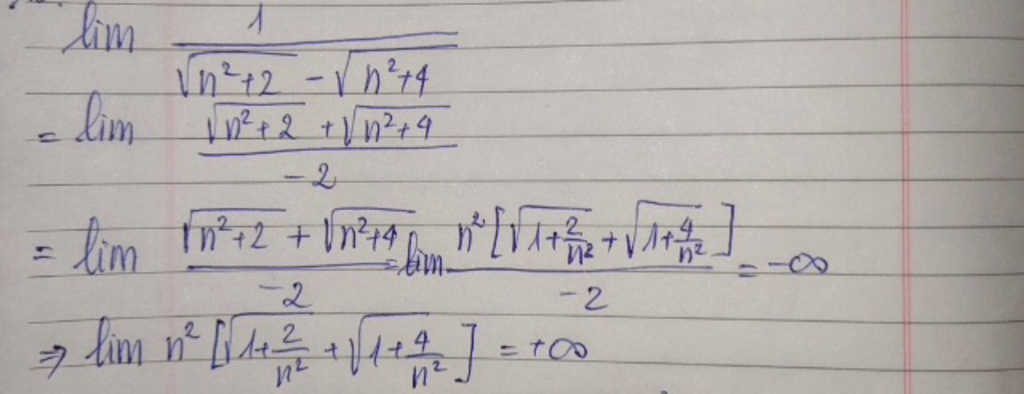 lim 1 / (√(n²+2) - √(n²+4))
= lim (√(n²+2) + √(n²+4)) / -2
= lim (√(n²+2) + √(n²+4)) / -2 = lim n²[√(1+2/n²) + √(1+4/n²)] / -2 = -∞
⇒ lim n² [√(1+2/n²) + √(1+4/n²)] = +∞